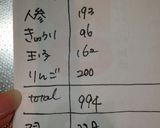 人参 193
きゅうり 96
玉子 162
りんご 200
total 994